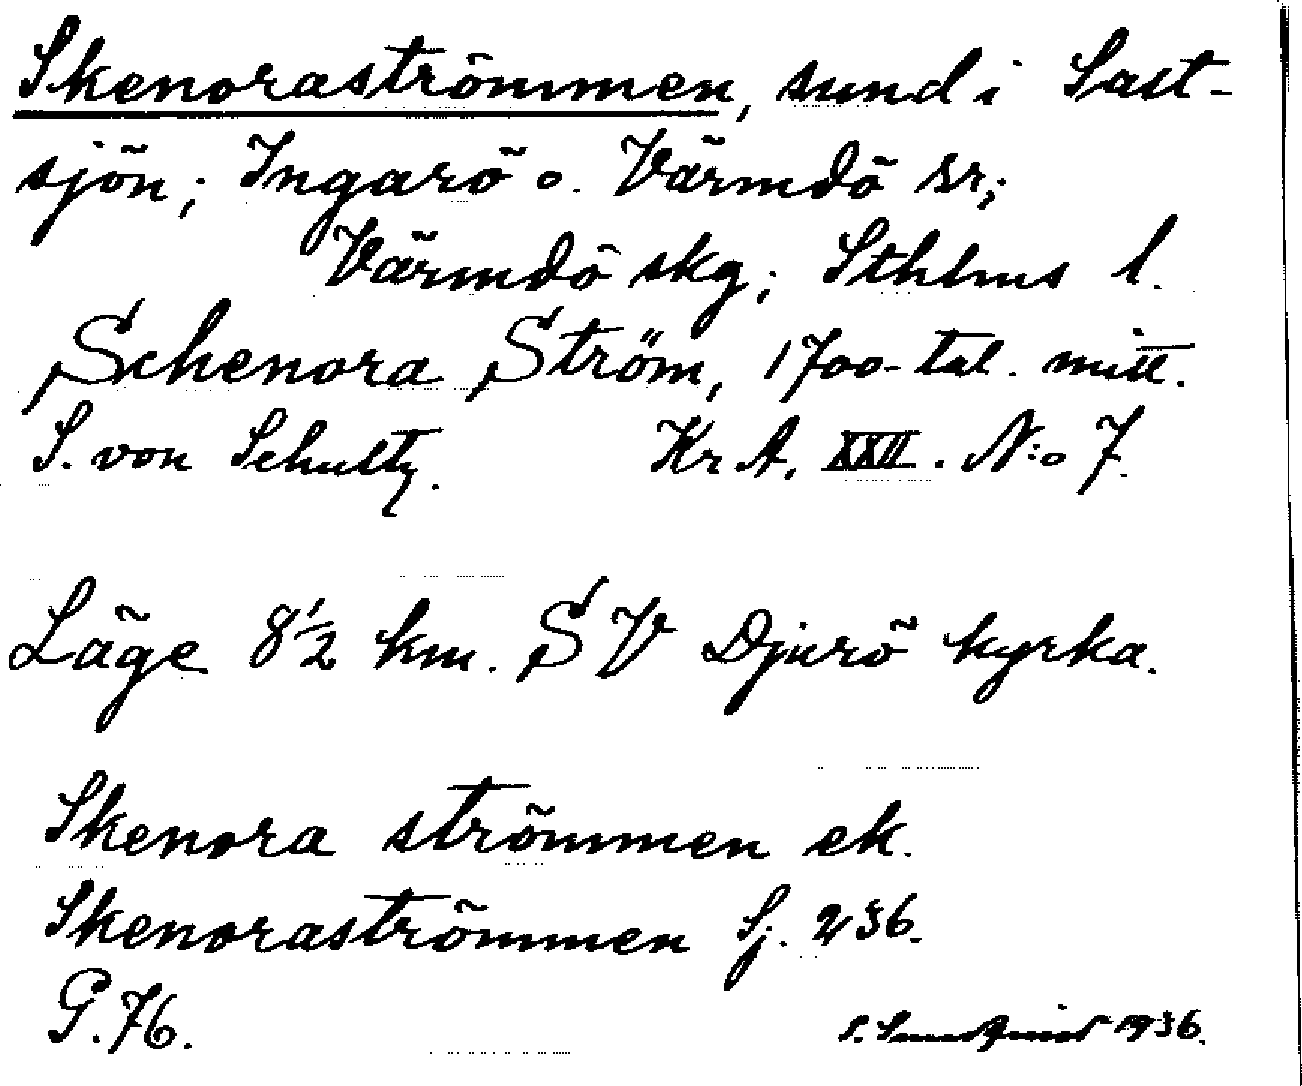 Skenoraströmmen, sund i Salt-
sjön; Ingarö o. Värmdö sr;
Värmdö skg; Sthlms l.
Schenora Ström, 1700-tal. mitt.
S. von Schultz. Kr A. XXII. N:o 7.
Läge 8 1/2 km. SV Djurö kyrka.
Skenora strömmen ek.
Skenoraströmmen Sj. 236.
G. 76.
S. 1936.